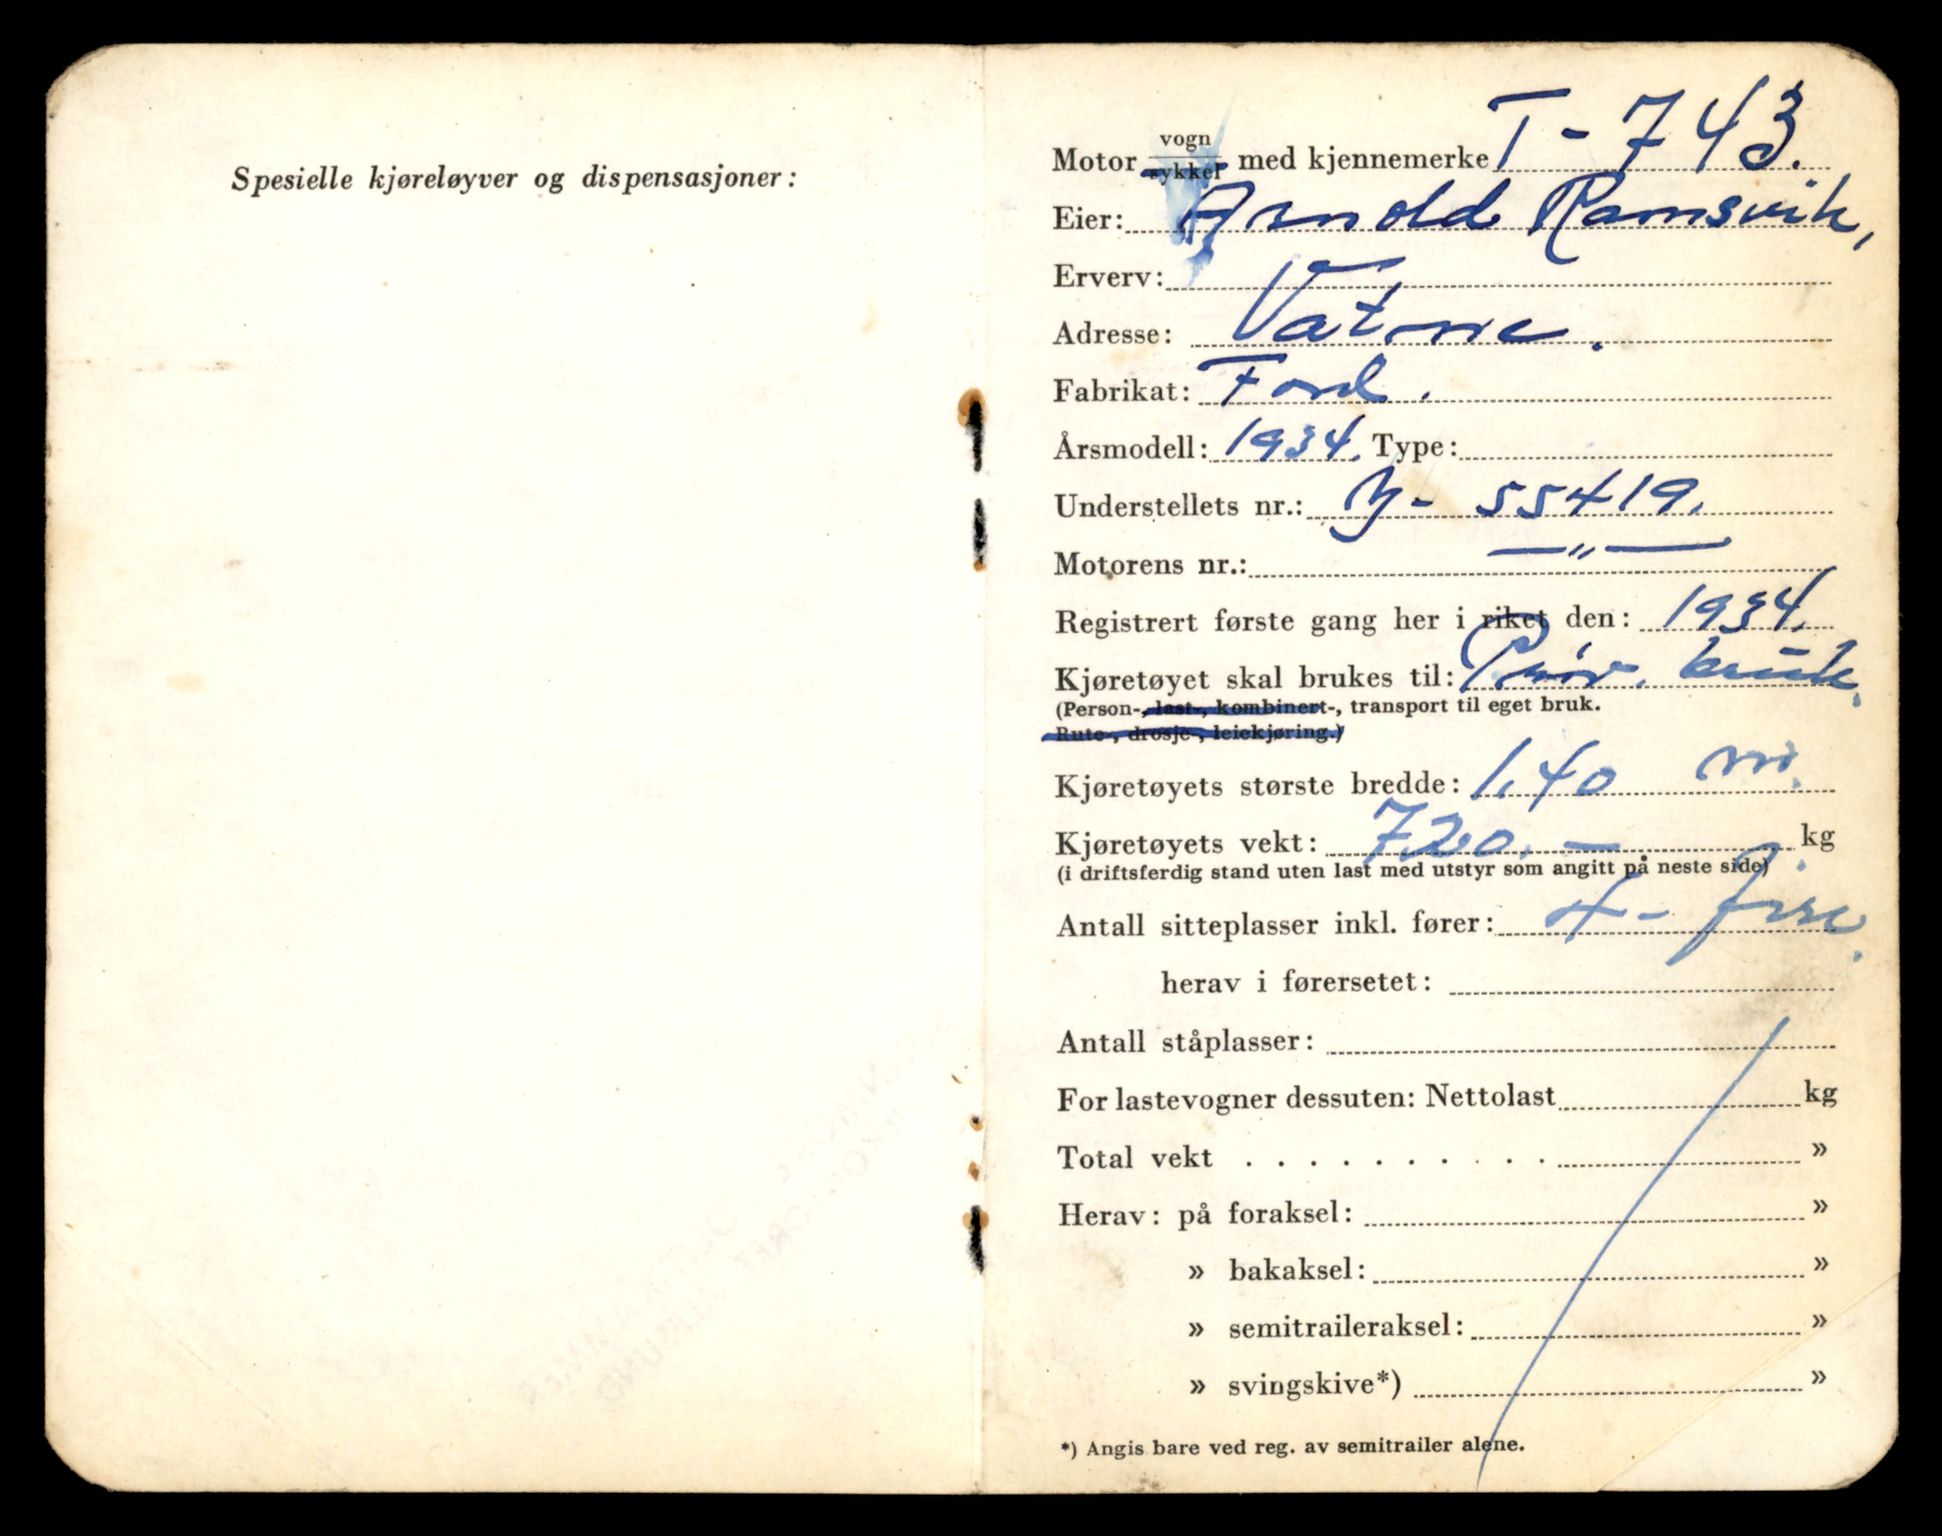 Spesielle kjøreløyver og dispensasjoner:
Motor vogn sykkel med kjennemerke T-743.
Eier: Arnold Ramsvik,
Erverv:
Adresse: Vatne.
Fabrikat: Ford.
Årsmodell: 1934. Type:
Understellets nr.: Y- 55419.
Motorens nr.: —"—
Registrert første gang her i riket den: 1934.
Kjøretøyet skal brukes til: Priv. bruk.
(Person-, last-, kombinert-, transport til eget bruk.
Rute-, drosje-, leiekjøring.)
Kjøretøyets største bredde: 1,40 m.
Kjøretøyets vekt: 720.— kg
(i driftsferdig stand uten last med utstyr som angitt på neste side)
Antall sitteplasser inkl. fører: 4- fire.
herav i førersetet:
Antall ståplasser:
For lastevogner dessuten: Nettolast kg
Total vekt . . . . . . . . . . »
Herav: på foraksel: »
» bakaksel: »
» semitraileraksel: »
» svingskive*) »
*) Angis bare ved reg. av semitrailer alene.